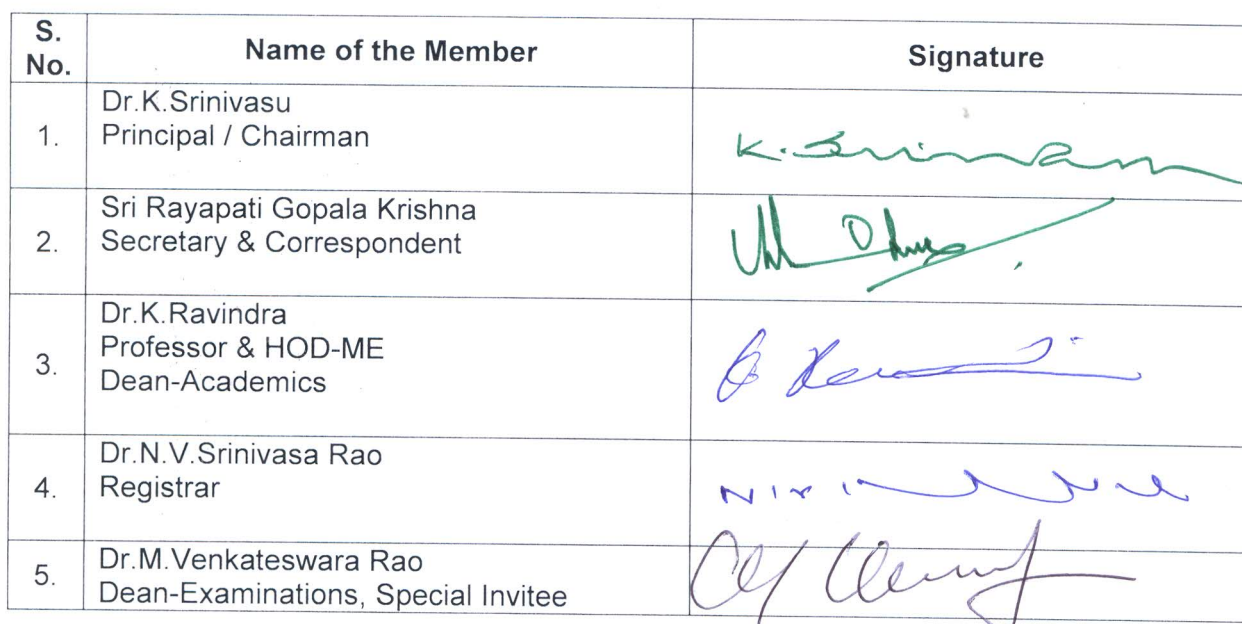 S.
No.
Name of the Member
Signature
1.
Dr.K.Srinivasu
Principal / Chairman
K. Srinivasu
2.
Sri Rayapati Gopala Krishna
Secretary & Correspondent
3.
Dr.K.Ravindra
Professor & HOD-ME
Dean-Academics
4.
Dr.N.V.Srinivasa Rao
Registrar
5.
Dr.M.Venkateswara Rao
Dean-Examinations, Special Invitee